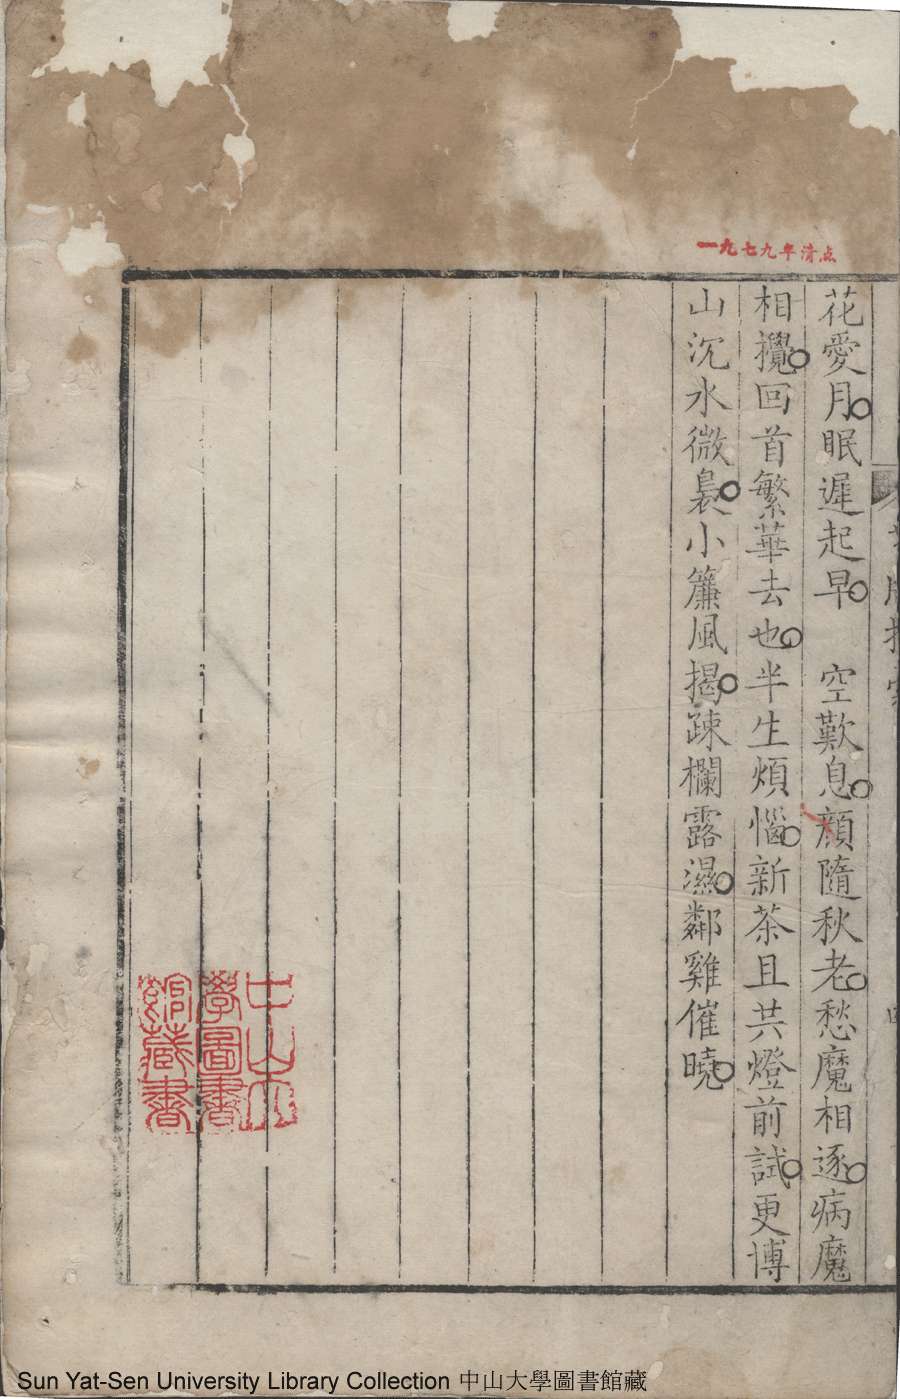 一九七九年清点
花愛月眠遲起早　空歎息顏隨秋老愁魔相逐病魔
相攪回首繁華去也半生煩惱新茶且共燈前試更博
山沉水微裊小簾風揭疎欄露濕鄰雞催曉
中山大
學圖書
館藏書
Sun Yat-Sen University Library Collection 中山大學圖書館藏